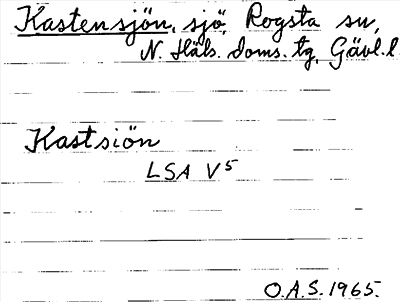 Kastensjön, sjö, Rogsta sn,
N. Häls. Doms. tg, Gävl. l.
Kastsiön
LSA V5
O.A.S. 1965.